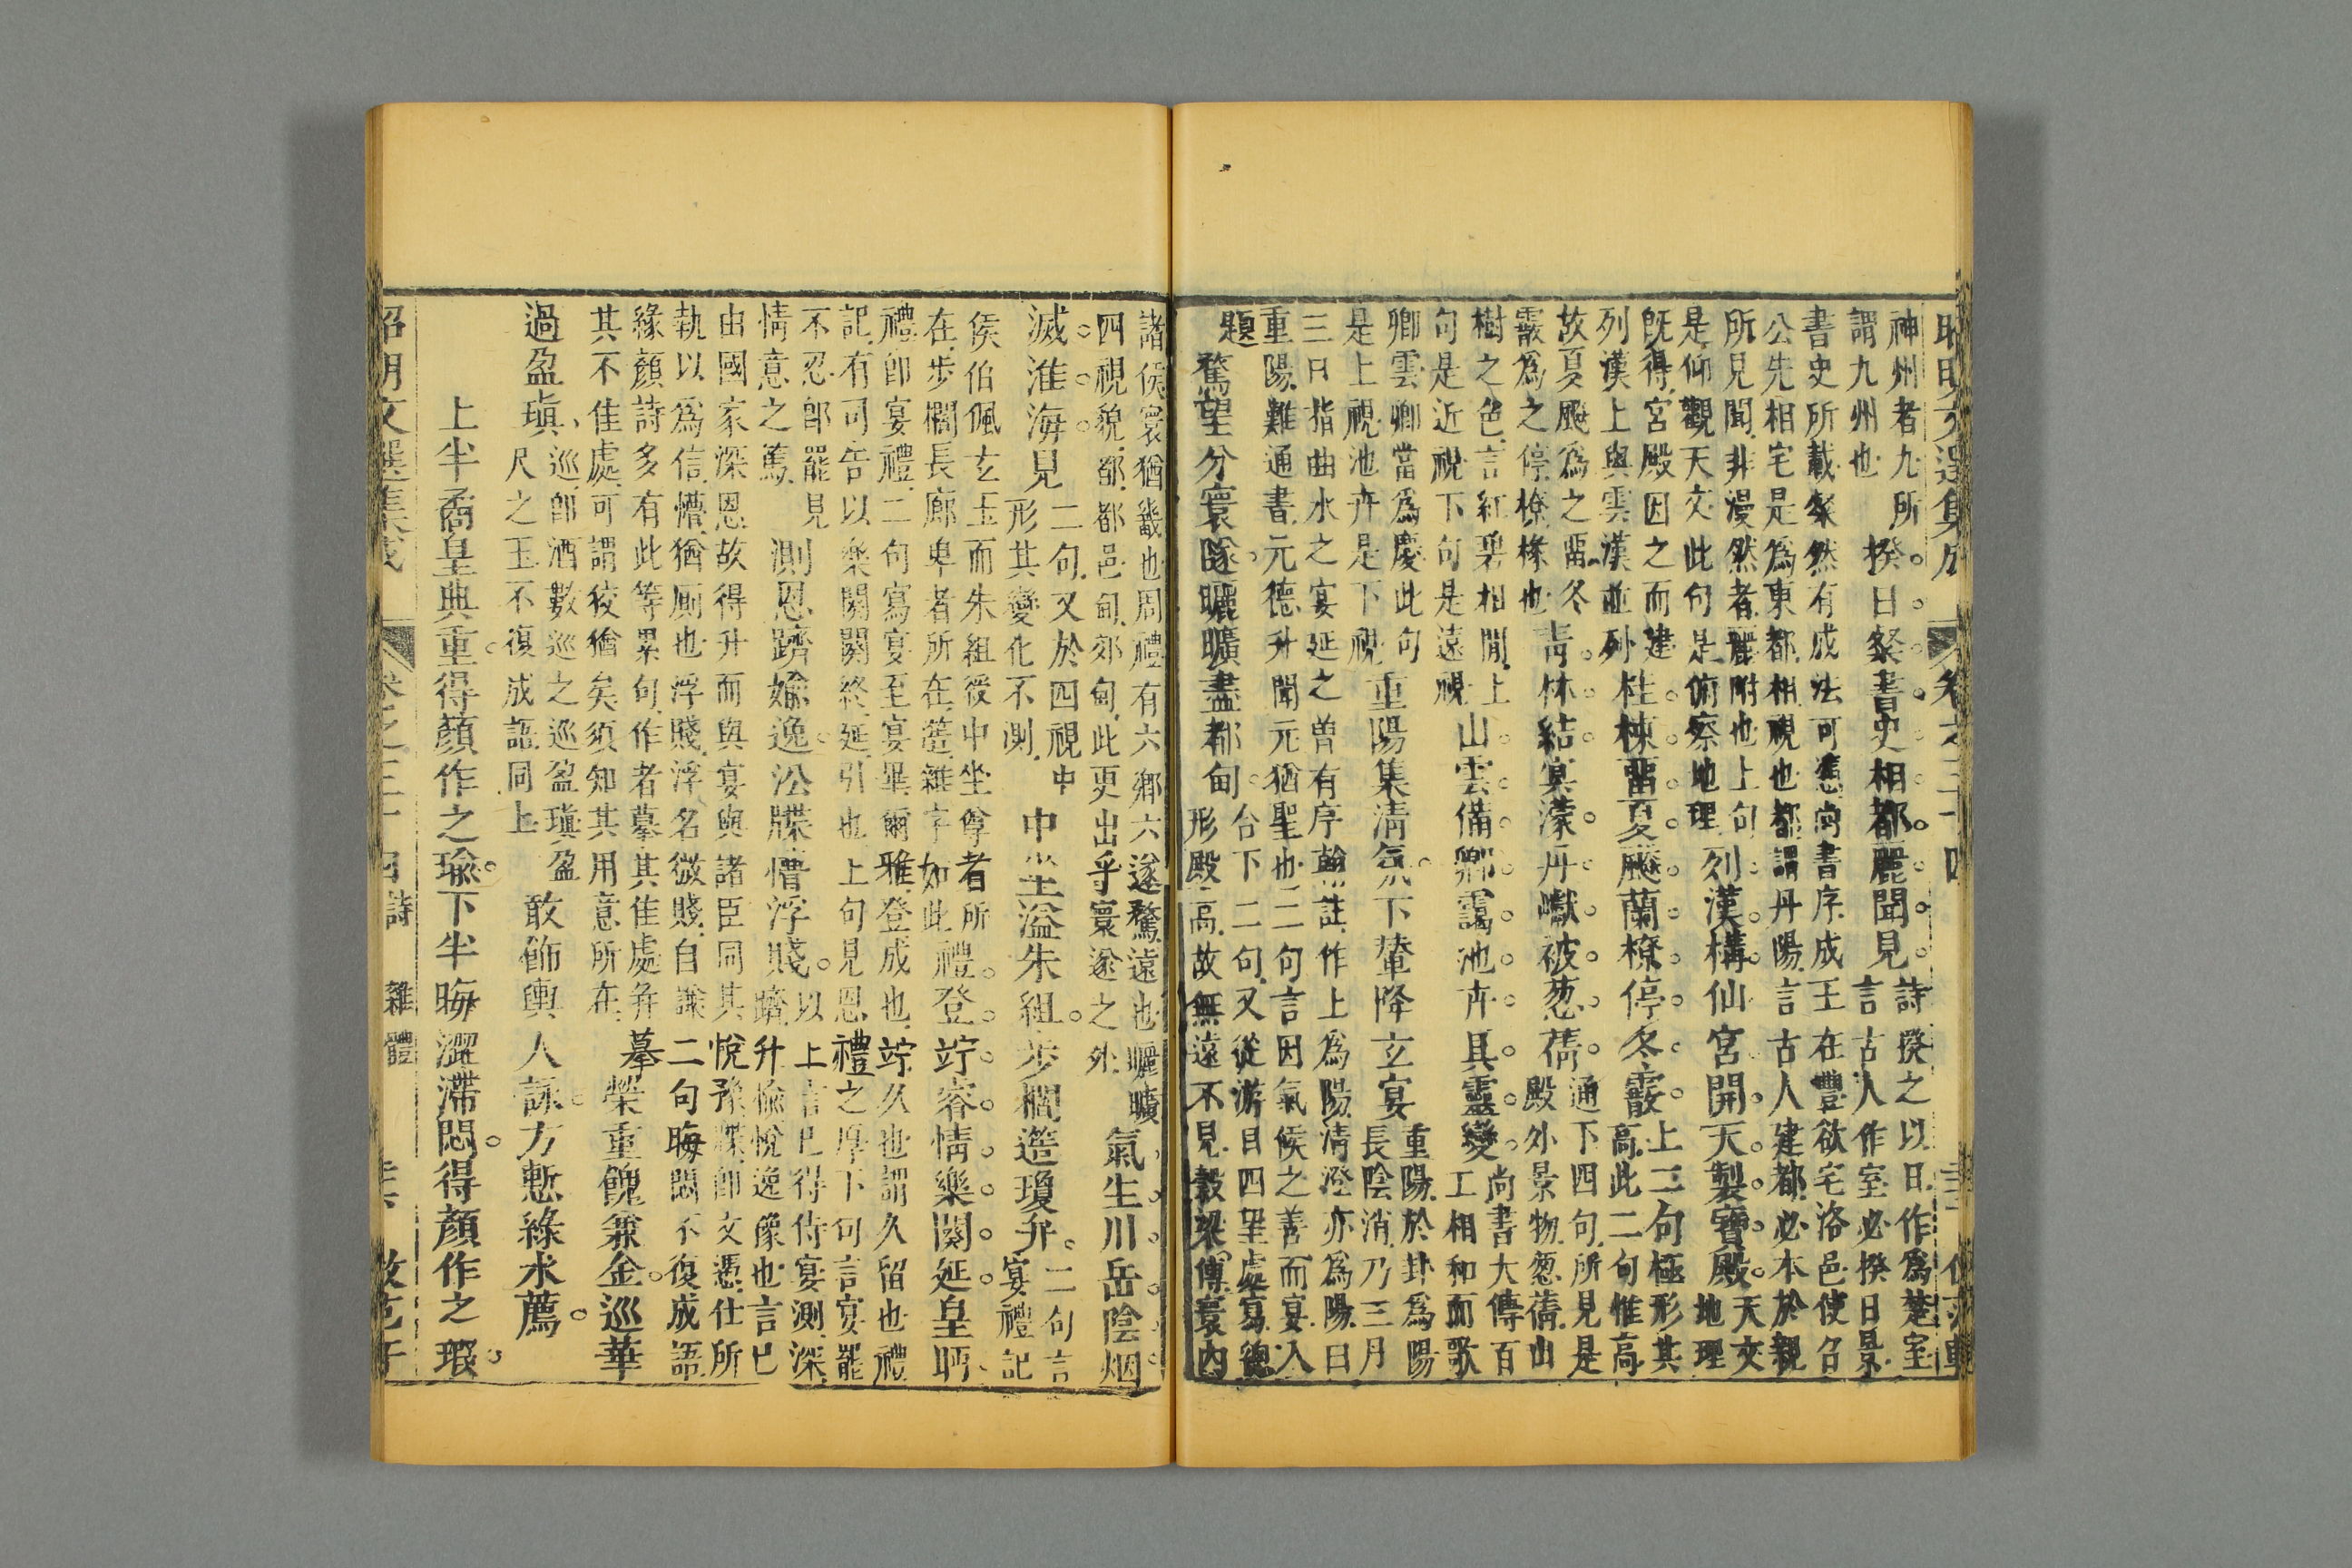 昭明文選集成 卷之三十四
神州者九所
謂九州也
揆日粲書史相都麗聞見
詩揆之以日作為楚室
言古人作室必揆日景
書史所載粲然有成法可憑尚書序成王在豐欲宅洛邑使召
公先相宅是為東都相視也都謂丹陽言古人建都必本於親
所見聞非漫然者麗附也上句
是仰觀天文此句是俯察地理
列漢構仙宮開天製寶殿
天文
地理
既得宮殿因之而建
列漢上與雲漢並列
桂棟畱夏飈蘭橑停冬霰
上二句極形其
高此二句惟高
故夏飈為之畱冬
霰為之停橑椽也
青林結冥濛丹巘被葱蒨
通下四句所見是
殿外景物葱蒨山
樹之色言紅碧相間上
句是近視下句是遠視
山雲備卿靄池卉具靈變
尚書大傳百
工相和而歌
卿雲卿當為慶此句
是上視池卉是下視
重陽集清氛下輦降玄宴
重陽於卦為陽
長陰消乃三月
三日指曲水之宴延之曾有序翰註作上為陽清澄亦為陽曰
重陽難通書元德升聞元猶聖也二句言因氣候之善而宴入
題
鶩望分寰隧曬曠盡都甸
台下二句又從游目四望處寫德
形殿高故無遠不見穀梁傳寰內
諸侯寰猶畿也周禮有六鄉六遂鶩遠也曬曠
四視貌都都邑甸郊甸此更出乎寰遂之外
氣生川岳陰烟
滅淮海見
二句又於四視中
形其變化不測
中坐溢朱組步櫩簉瓊弁
二句言
宴禮記
侯伯佩玄玉而朱組綬中坐尊者所
在步櫩長廊卑者所在簉雜字如此
禮登竚睿情樂闋延皇眄
禮卽宴禮二句寫宴至宴畢爾雅登成也竚久也謂久留也禮
記有可告以樂闋闋終延引也上句見恩禮之厚下句言宴罷
不忍卽罷見
情意之篤
測恩躋媮逸沿牒懵浮賤
以上言已得侍宴測深
躋升愉悅逸豫也言已
由國家深恩故得升而與宴與諸臣同其悅豫牒卽文憑仕所
執以為信懵猶厠也浮賤浮名微賤自謙二句晦悶不復成語
緣顏詩多有此等累句作者摹其佳處并摹
其不佳處可謂狡獪矣須知其用意所在
榮重餽兼金巡華
過盈瑱
巡卽酒數巡之巡盈瑱盈
尺之玉不復成語同上
敢飾輿人詠方慙綠水薦
上半矞皇典重得顏作之瑜下半晦澀滯悶得顏作之瑕
昭明文選集成 卷之三十四 詩 雜體